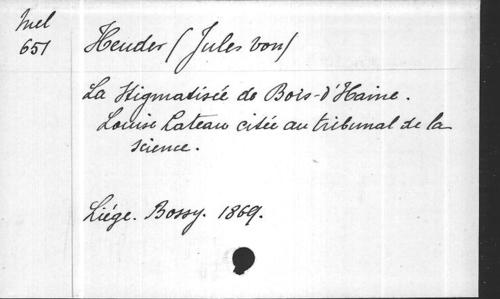 Mel
651
Heuder (Jules von)
La Stigmatisée de Bois-d'Haine.
Louise Lateau citée au tribunal de la
science.
Liége. Bossy. 1869.